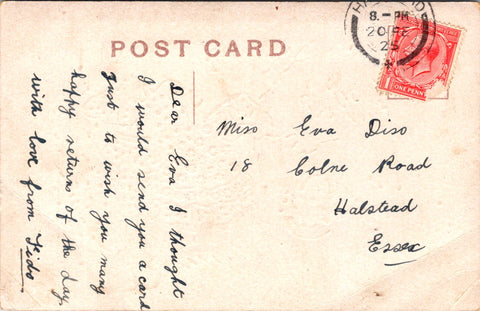 POST CARD
8. - PM
20 FE
25
ONE PENNY
Dear Eva I thought
I would send you a card
Just to wish you many
happy returns of the day.
with love from Fido
Miss Eva Diso
18 Colne Road
Halstead
Essex